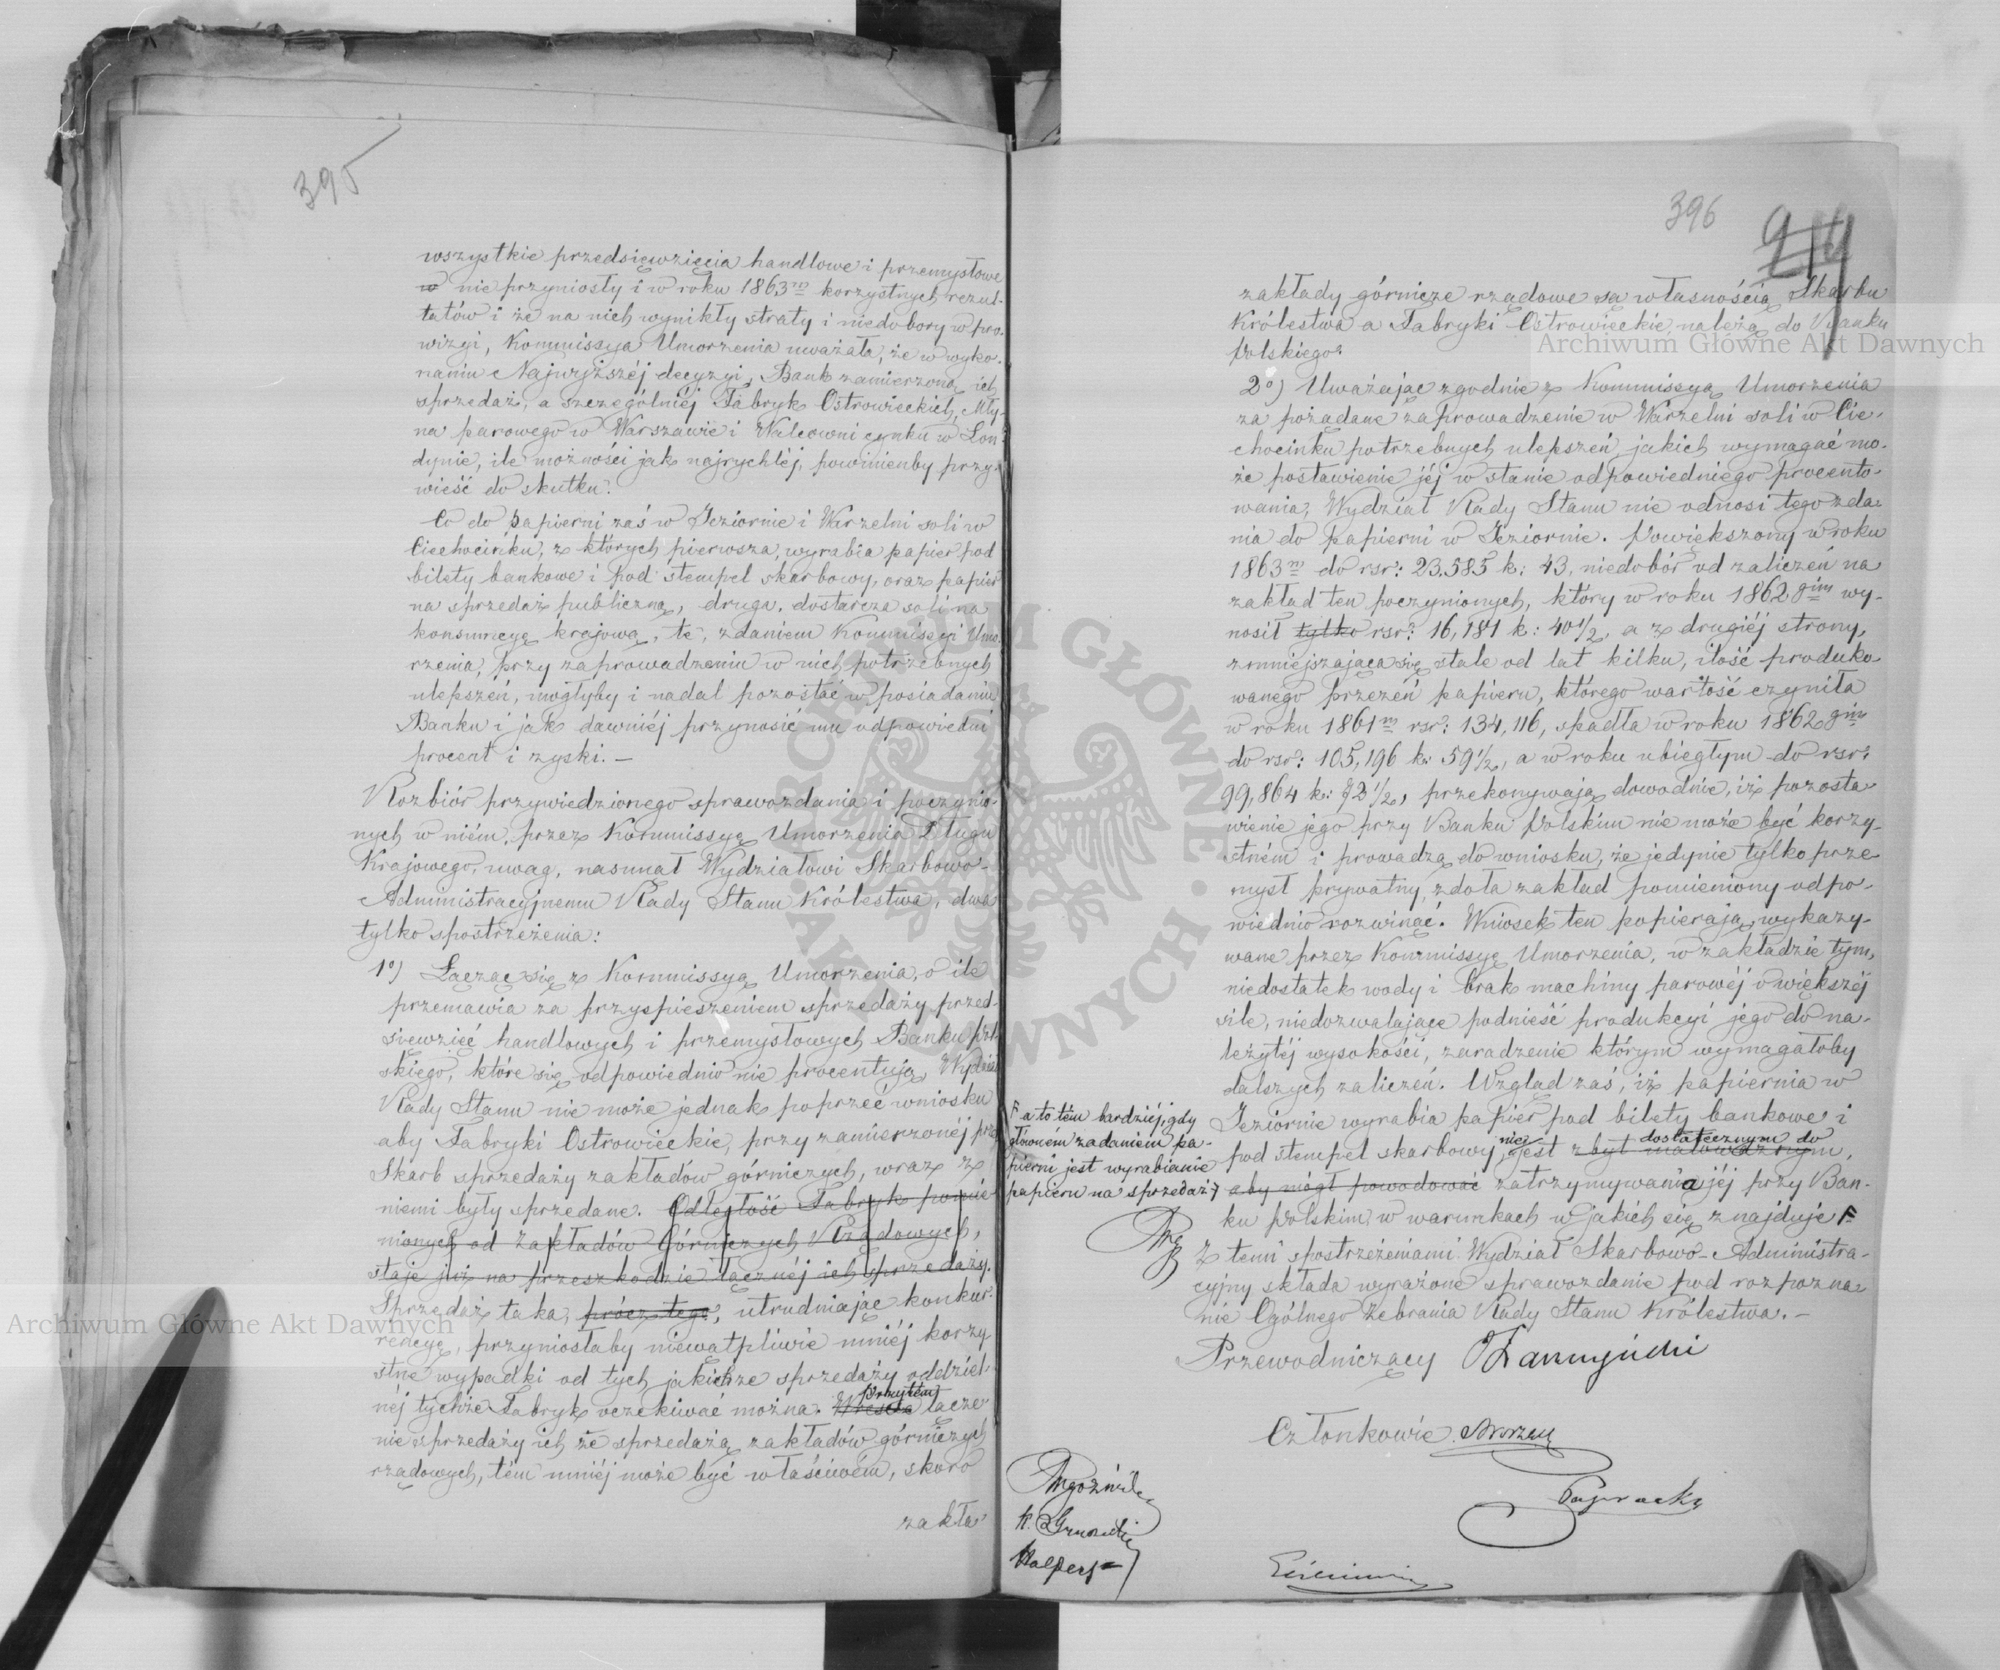 395
wszystkie przedsięwzięcia handlowe i przemysłowe
w nie przyniosły i w roku 1863m korzystnych rezul-
tatów i że na nich wynikły straty i niedobory w pro-
wizyi, Kommissya Umorzenia uważała, że w wyko-
naniu Najwyższéj decyzyi, Bank zamierzoną ich
sprzedaż, a szczególniéj Fabryk Ostrowieckich, Mły-
na parowego w Warszawie i Walcowni cynku w Lon-
dynie, ile możności jak najrychléj, powinienby przy-
wieść do skutku.
Co do papierni zaś w Jeziornie i Warzelni soli w
Ciechocinku, z których pierwsza, wyrabia papier pod
bilety bankowe i pod stempel skarbowy, oraz papier
na sprzedaż publiczną, druga, dostarcza soli na
konsumcyę krajową, te, zdaniem Kommissyi Umo-
rzenia, przy zaprowadzeniu w nich potrzebnych
ulepszeń, mogłyby i nadal pozostać w posiadaniu
Banku i jak dawniéj przynosić mu odpowiedni
procent i zyski. —
Rozbiór przywiedzionego sprawozdania i poczynio-
nych w niém, przez Kommissyę Umorzenia Długu
Krajowego, uwag, nasunął Wydziałowi Skarbowo-
Administracyjnemu Rady Stanu Królestwa, dwa
tylko spostrzeżenia:
1o) Łącząc się z Kommissyą Umorzenia, o ile
przemawia za przyspieszeniem sprzedaży przed-
sięwzięć handlowych i przemysłowych Banku Pol-
skiego, które się odpowiednio nie procentują, Wydział
Rady Stanu nie może jednak poprzeć wniosku
aby Fabryki Ostrowieckie, przy zamierzonéj przez
Skarb sprzedaży zakładów górniczych, wraz z
niemi były sprzedane. Odległość Fabryk pomie-
nionych od Zakładów Górniczych Rządowych,
staje już na przeszkodzie łącznéj ich sprzedaży.
Sprzedaż taka, prócz tego, utrudniając konkur-
rencyę, przyniosłaby niewątpliwie mniéj korzy-
stne wypadki od tych jakichże sprzedaży oddziel-
néj tychże Fabryk oczekiwać można. Wreszcie Przytém łącze-
nie sprzedaży ich ze sprzedażą zakładów górniczych
rządowych, tém mniéj może być właściwém, skoro
zakła-
396
zakłady górnicze rządowe są własnością Skarbu
Królestwa a Fabryki Ostrowieckie należą do Banku
Polskiego.
2o) Uważając zgodnie z Kommissyą Umorzenia
za pożądane zaprowadzenie w Warzelni soli w Cie-
chocinku potrzebnych ulepszeń, jakich wymagać mo-
że postawienie jéj w stanie odpowiedniego procento-
wania, Wydział Rady Stanu nie odnosi tego zda-
nia do papierni w Jeziornie. Powiększony w roku
1863m do rsr: 23.585 k: 43, niedobór od zaliczeń na
zakład ten poczynionych, który w roku 1862gim wy-
nosił tylko rsr: 16,181 k: 40 1/2, a z drugiéj strony,
zmniejszająca się stale od lat kilku, ilość produko-
wanego przezeń papieru, którego wartość czyniła
w roku 1861m rsr: 134,116, spadła w roku 1862gim
do rsr: 105,196 k: 59 1/2, a w roku ubiegłym do rsr:
99,864 k: 72 1/2, przekonywają dowodnie, iż pozosta-
wienie jego przy Banku Polskim nie może być korzy-
stném i prowadzą do wniosku, że jedynie tylko prze-
mysł prywatny, zdoła zakład pomieniony odpo-
wiednio rozwinąć. Wniosek ten popierają, wykazy-
wane przez Kommissyę Umorzenia, w zakładzie tym,
niedostatek wody i brak machiny parowéj o większéj
sile, niedozwalające podnieść produkcyi jego do na-
leżytéj wysokości, zaradzenie którym wymagałoby
dalszych zaliczeń. Wzgląd zaś, iż papiernia w
Jeziornie wyrabia papier pod bilety bankowe i
pod stempel skarbowy, nie jest zbyt małoważnym, dostatecznym do
aby mógł powodować zatrzymywania jéj przy Ban-
ku Polskim, w warunkach w jakich się znajduje F
F a to tém bardziéj, gdy
główném zadaniem pa-
pierni jest wyrabianie
papieru na sprzedaż
Z temi spostrzeżeniami Wydział Skarbowo-Administra-
cyjny składa wyrażone sprawozdanie pod rozpozna-
nie Ogólnego Zebrania Rady Stanu Królestwa. —
Przewodniczący
Członkowie
Archiwum Główne Akt Dawnych
Archiwum Główne Akt Dawnych
ARCHIWUM GŁÓWNE AKT DAWNYCH